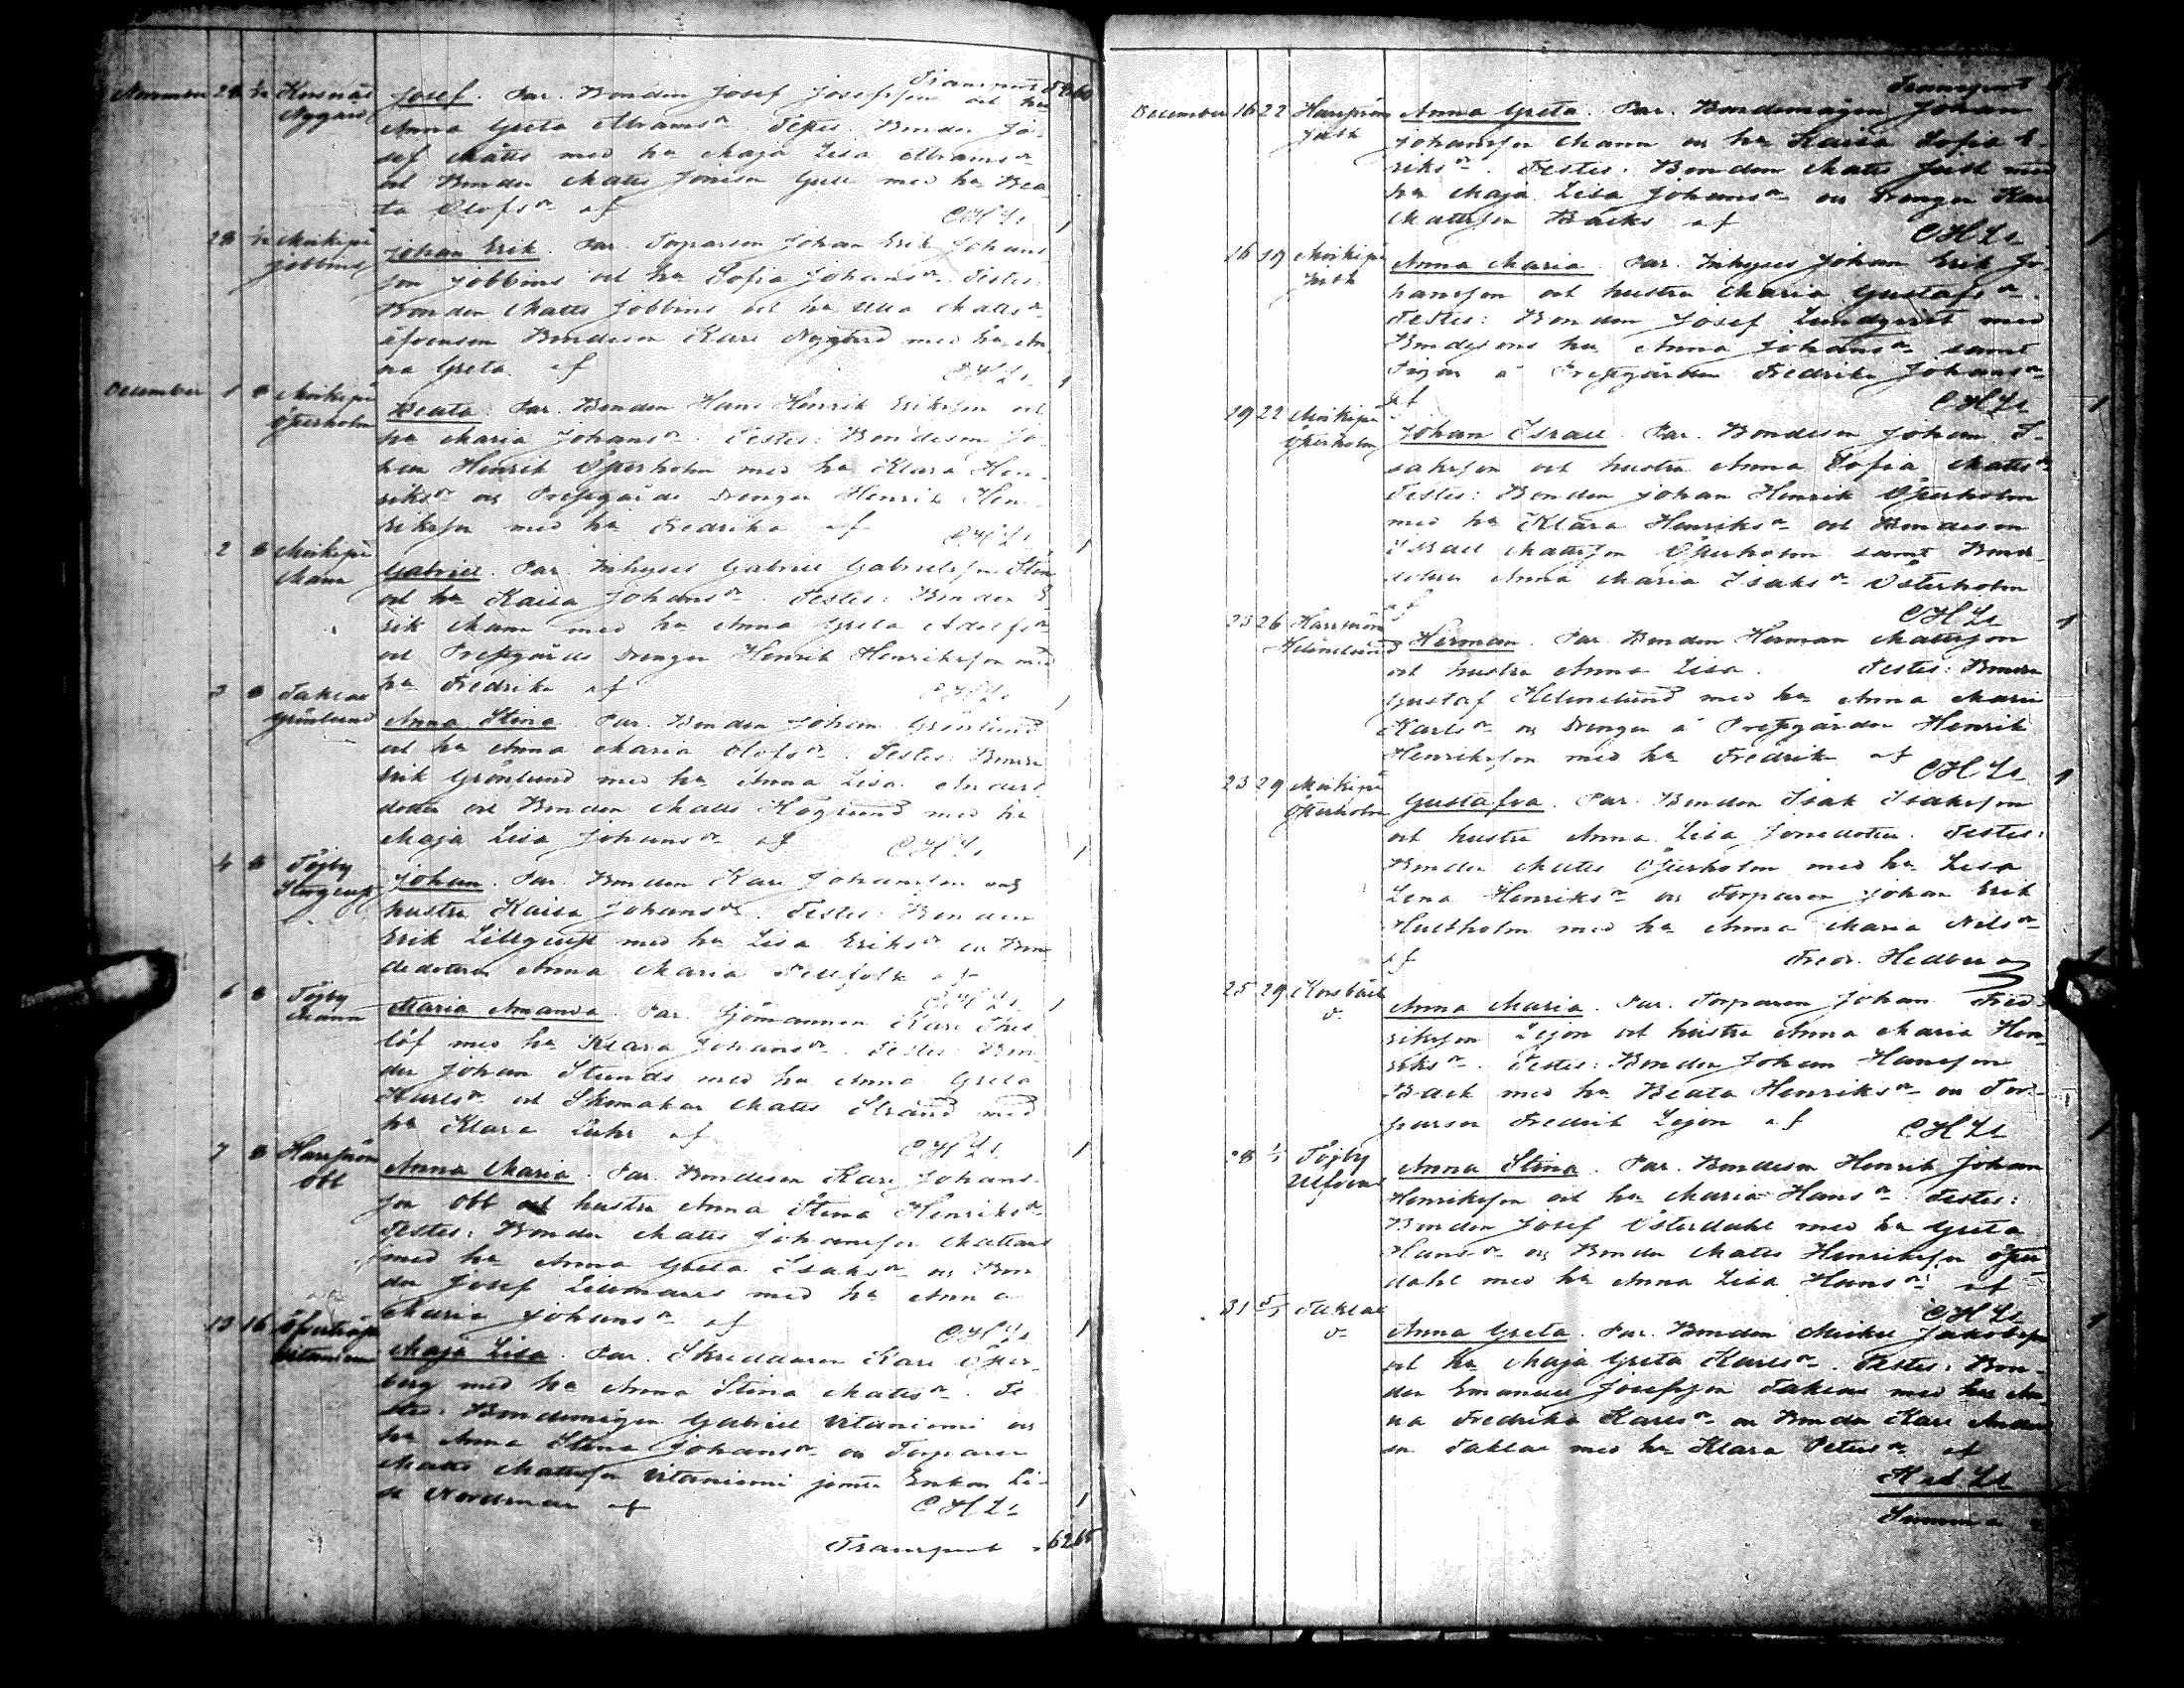 Transport 58 60
November 28 1/12 Korsnäs Josef. Par. Bonden Josef Josefsson och hu
Nygård Anna Greta Abramsdr. Testes: Bonden Jo-
sef Matts med hu Maja Lisa Abramsdr
och Bonden Matts Jonsson Gull med hu Bea
ta Olofsdr af CHLs 1
28 1/12 Moikipä Johan Erik. Par. Torparen Johan Erik Johans
Jobbins son Jobbins och hu Sofia Johansdr. Testes:
Bonden Matts Jobbins och hu Ulla Mattsdr
äfvensom Bondeson Karl Nygård med hu An
na Greta af CHLs 1
December 1 8 Moikipä Beata. Par. Bonden Hans Henrik Eriksson och
Österholm hu Maria Johansdr. Testes: Bondeson Jo
han Henrik Österholm med hu Klara Hen
riksdr och Prestgårds drengen Henrik Hen
riksson med hu Fredrika af CHLs 1
2 8 Moikipä Gabriel. Par. Inhyses Gabriel Gabrielsson Sten
Mann och hu Kaisa Johansdr. Testes: Bonden E
rik Mann med hu Anna Greta Adolfsdr
och Prestgårds drengen Henrik Henriksson med
hu Fredrika af CHLs 1
3 8 Taklax Anna Stina. Par. Bonden Johan Grönlund
Grönlund och hu Anna Maria Olofsdr. Testes: Bonden
Erik Grönlund med hu Anna Lisa Anders
dotter och Bonden Matts Höglund med hu
Maja Lisa Johansdr af CHLs 1
4 8 Töjby Johan. Par. Bonden Karl Johansson och
Storgeust hustru Kaisa Johansdr. Testes: Bonden
Erik Lillgeust med hu Lisa Eriksdr och Bon
dedotren Anna Maria Teilfolk af CHLs 1
6 8 Töjby Maria Amanda. Par. Sjömannen Karl Thel
Mann löf med hu Klara Johansdr. Testes: Bon
den Johan Strands med hu Anna Greta
Karlsdr och Skomakar Matts Strand med
hu Klara Luhr af CHLs 1
7 8 Harrström Anna Maria. Par. Bondeson Karl Johans
Obb son Obb och hustru Anna Stina Henriksdr
Testes: Bonden Matts Johansson Mattans
med hu Anna Greta Isaksdr och Bon
den Josef Lillmans med hu Anna
Maria Johansdr af CHLs 1
13 16 Maja Lisa. Par. Skreddaren Karl Öster-
berg med hu Anna Stina Mattsdr. Te
stes: Bondemågen Gabriel Vitaniemi och
hu Anna Stina Johansdr och Torparen
Matts Mattsson Vitaniemi jemte Enkan Li-
sa Nordman af CHLs 1
Transport 62 65
Transport
December 16 22 Harrström Anna Greta. Par. Bondemågen Johan
Juth Johansson Mann och hu Kaisa Sofia E-
riksdr. Testes: Bonden Matts Juth med
hu Maja Lisa Johansdr och Drengen Karl
Mattsson Backs af CHLs 1
16 19 Moikipä Anna Maria. Par. Inhyses Johan Erik Jo-
Juth hansson och hustru Maria Gustafsdr.
Testes: Bonden Josef Lundqvist med
Bondesons hu Anna Johansdr samt
Pigan å Prestgården Fredrika Johansdr
af CHLs 1
19 22 Moikipä Johan Israel. Par. Bondeson Johan I-
Österholm saksson och hustru Anna Sofia Mattsdr
Testes: Bonden Johan Henrik Österholm
med hu Klara Henriksdr och Bondeson
Israel Mattsson Österholm samt Bond-
dotren Anna Maria Isaksdr Österholm
af CHLs 1
23 26 Harrström Herman. Par. Bonden Herman Mattsson
Helenelund och hustru Anna Lisa. Testes: Bonden
Gustaf Helenelund med hu Anna Maria
Karlsdr och Drengen å Prestgården Henrik
Henriksson med hu Fredrika af
CHLs 1
23 29 Moikipä Gustafva. Par. Bonden Isak Isaksson
Österholm och hustru Anna Lisa Jonsdotter. Testes:
Bonden Matts Österholm med hu Lisa
Lena Henriksdr och Torparen Johan Erik
Hultholm med hu Anna Maria Nilsdr
af Fredr. Hedberg 1
25 29 Korsbäck Anna Maria. Par. Torparen Johan Fred-
riksson Lejon och hustru Anna Maria Hen
riksdr. Testes: Bonden Johan Hansson
Back med hu Beata Henriksdr och Tor-
paren Fredrik Lejon af CHLs 1
28 1/1 Töjby Anna Stina. Par. Bondeson Henrik Johan
Ulfves Henriksson och hu Maria Hansdr Testes:
Bonden Josef Österdahl med hu Greta
Hansdr och Bonden Matts Henriksson Öster
dahl med hu Anna Lisa Hansdr af
CHLs 1
31 5/1 Taklax Anna Greta. Par. Bonden Mickel Jakobsson
och hu Maja Greta Karlsdr. Testes: Bon-
den Emanuel Josefsson Taklax med hu An
na Fredrika Karlsdr och Bonden Karl Anders
son Taklax med hu Klara Petersdr af
Summa